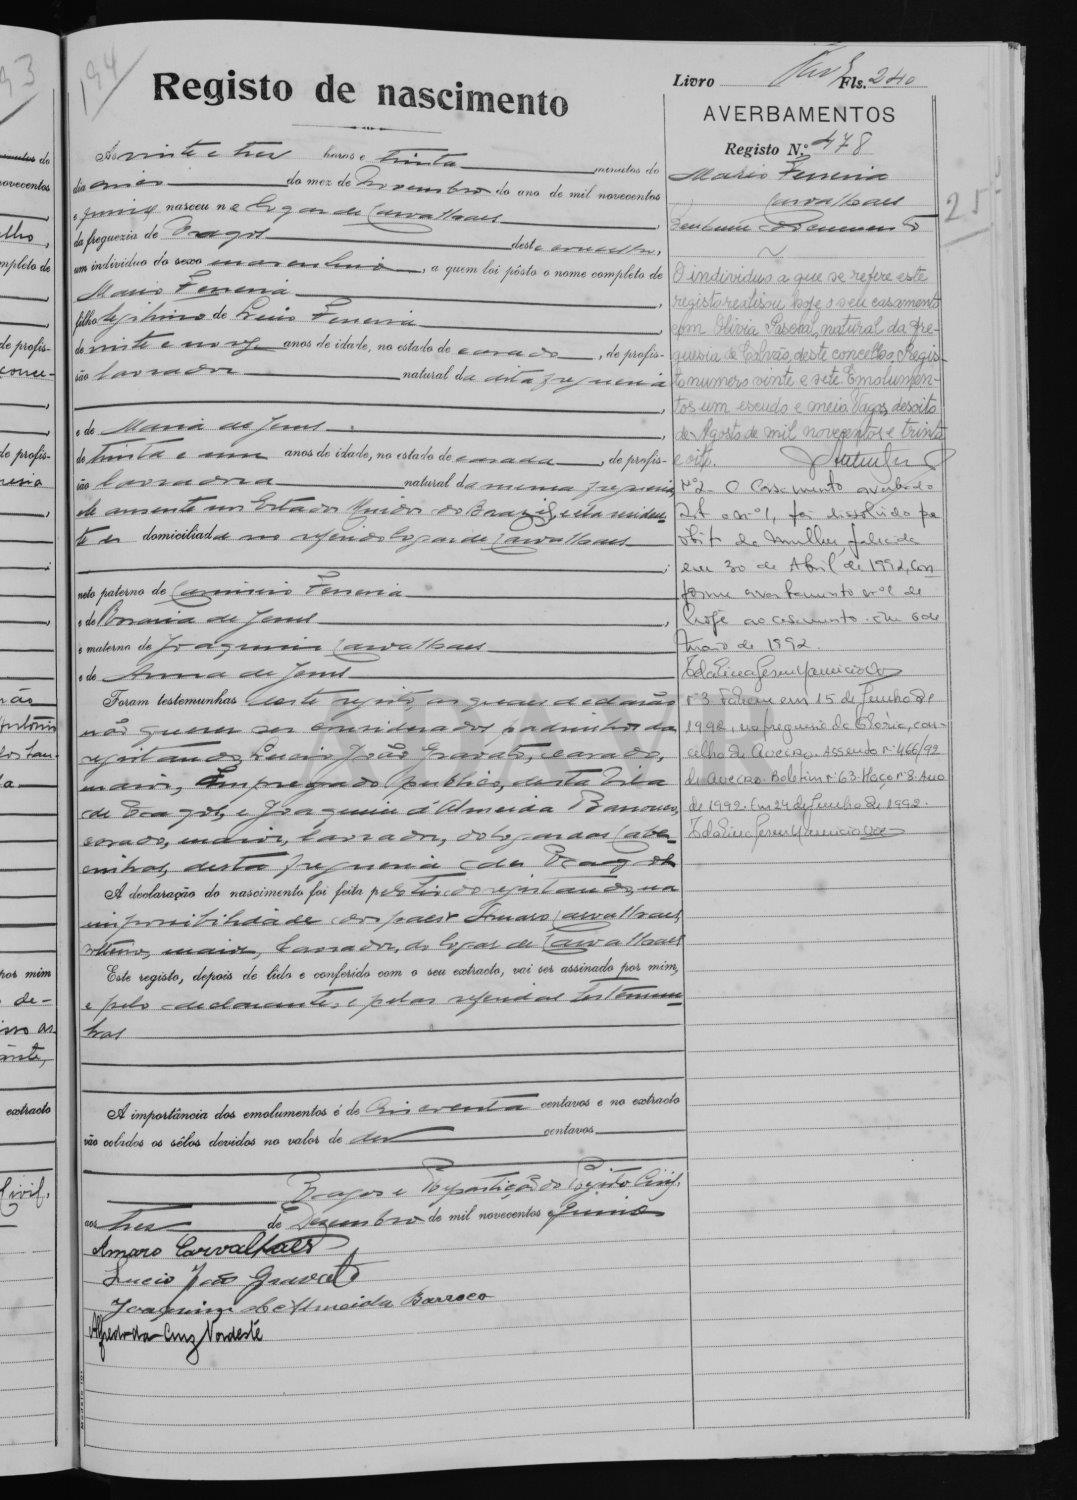 194
Registo de nascimento
Livro Fls. 240
AVERBAMENTOS
Registo N.º 478
Mario Ferreira
Carvalhaes
25
Ás vinte e tres horas e trinta minutos do
dia onze do mez de Novembro do ano de mil novecentos
e quinze nasceu no logar de Carvalhaes,
da freguezia de Vagos deste concelho,
um individuo do sexo masculino, a quem foi pôsto o nome completo de
Mario Ferreira,
filho legitimo de Lucio Ferreira,
de vinte e nove anos de idade, no estado de casado, de profis-
são lavrador natural da dita freguesia
,
e de Maria de Jesus,
de trinta e um anos de idade, no estado de casada, de profis-
são lavradora natural da mesma freguesia,
ele ausente nos Estados Unidos do Brazil, e ela residen-
te e domiciliada no referido logar de Carvalhaes
;
neto paterno de Ferreira
e de Rosaria de Jesus,
e materno de Joaquim Carvalhaes
e de Anna de Jesus
Foram testemunhas deste registo, as quaes declarão
não querer ser considerados padrinhos do
registando, Lucio João Gravato, casado,
maior, empregado publico, desta vila
de Vagos, e Joaquim d'Almeida Barroco,
casado, maior, lavrador, do logar das
desta freguesia de Vagos
A declaração do nascimento foi feita pelo tio do registando, na
impossibilidade dos paes Amaro Carvalhaes,
solteiro, maior, lavrador, do logar de Carvalhaes
Este registo, depois de lido e conferido com o seu extracto, vai ser assinado por mim,
e pelo declarante, e pelas referidas testemu-
nhas
A importância dos emolumentos é de cincoenta centavos e no extracto
vão colados os sêlos devidos no valor de dez centavos
Vagos e Repartição do Registo Civil,
aos tres de Dezembro de mil novecentos e quinze
Amaro Carvalhaes
Lucio João Gravato
Joaquim de Almeida Barroco
Alfredo da Cruz Nordeste
O individuo a que se refere este
registo realisou hoje o seu casamento
com Olivia Pascoal, natural da fre-
guesia de Calvão, deste concelho. Regis-
to numero vinte e sete. Emolumen-
tos um escudo e meio. Vagos, desoito
de Agosto de mil novecentos e trinta
e oito.
Nº2 - O Casamento averbado
sob o nº1, foi dissolvido por
óbito da mulher, falecida
em 30 de Abril de 1992, con-
forme averbamento nº2 de
hoje ao casamento. Em 6 de
Maio de 1992.
Nº3 Faleceu em 15 de Junho de
1992, na freguesia da Glória, con-
celho de Aveiro. Assento nº466/92
de Aveiro. Boletim nº63. Maço nº8. Ano
de 1992. Em 24 de Junho de 1992.